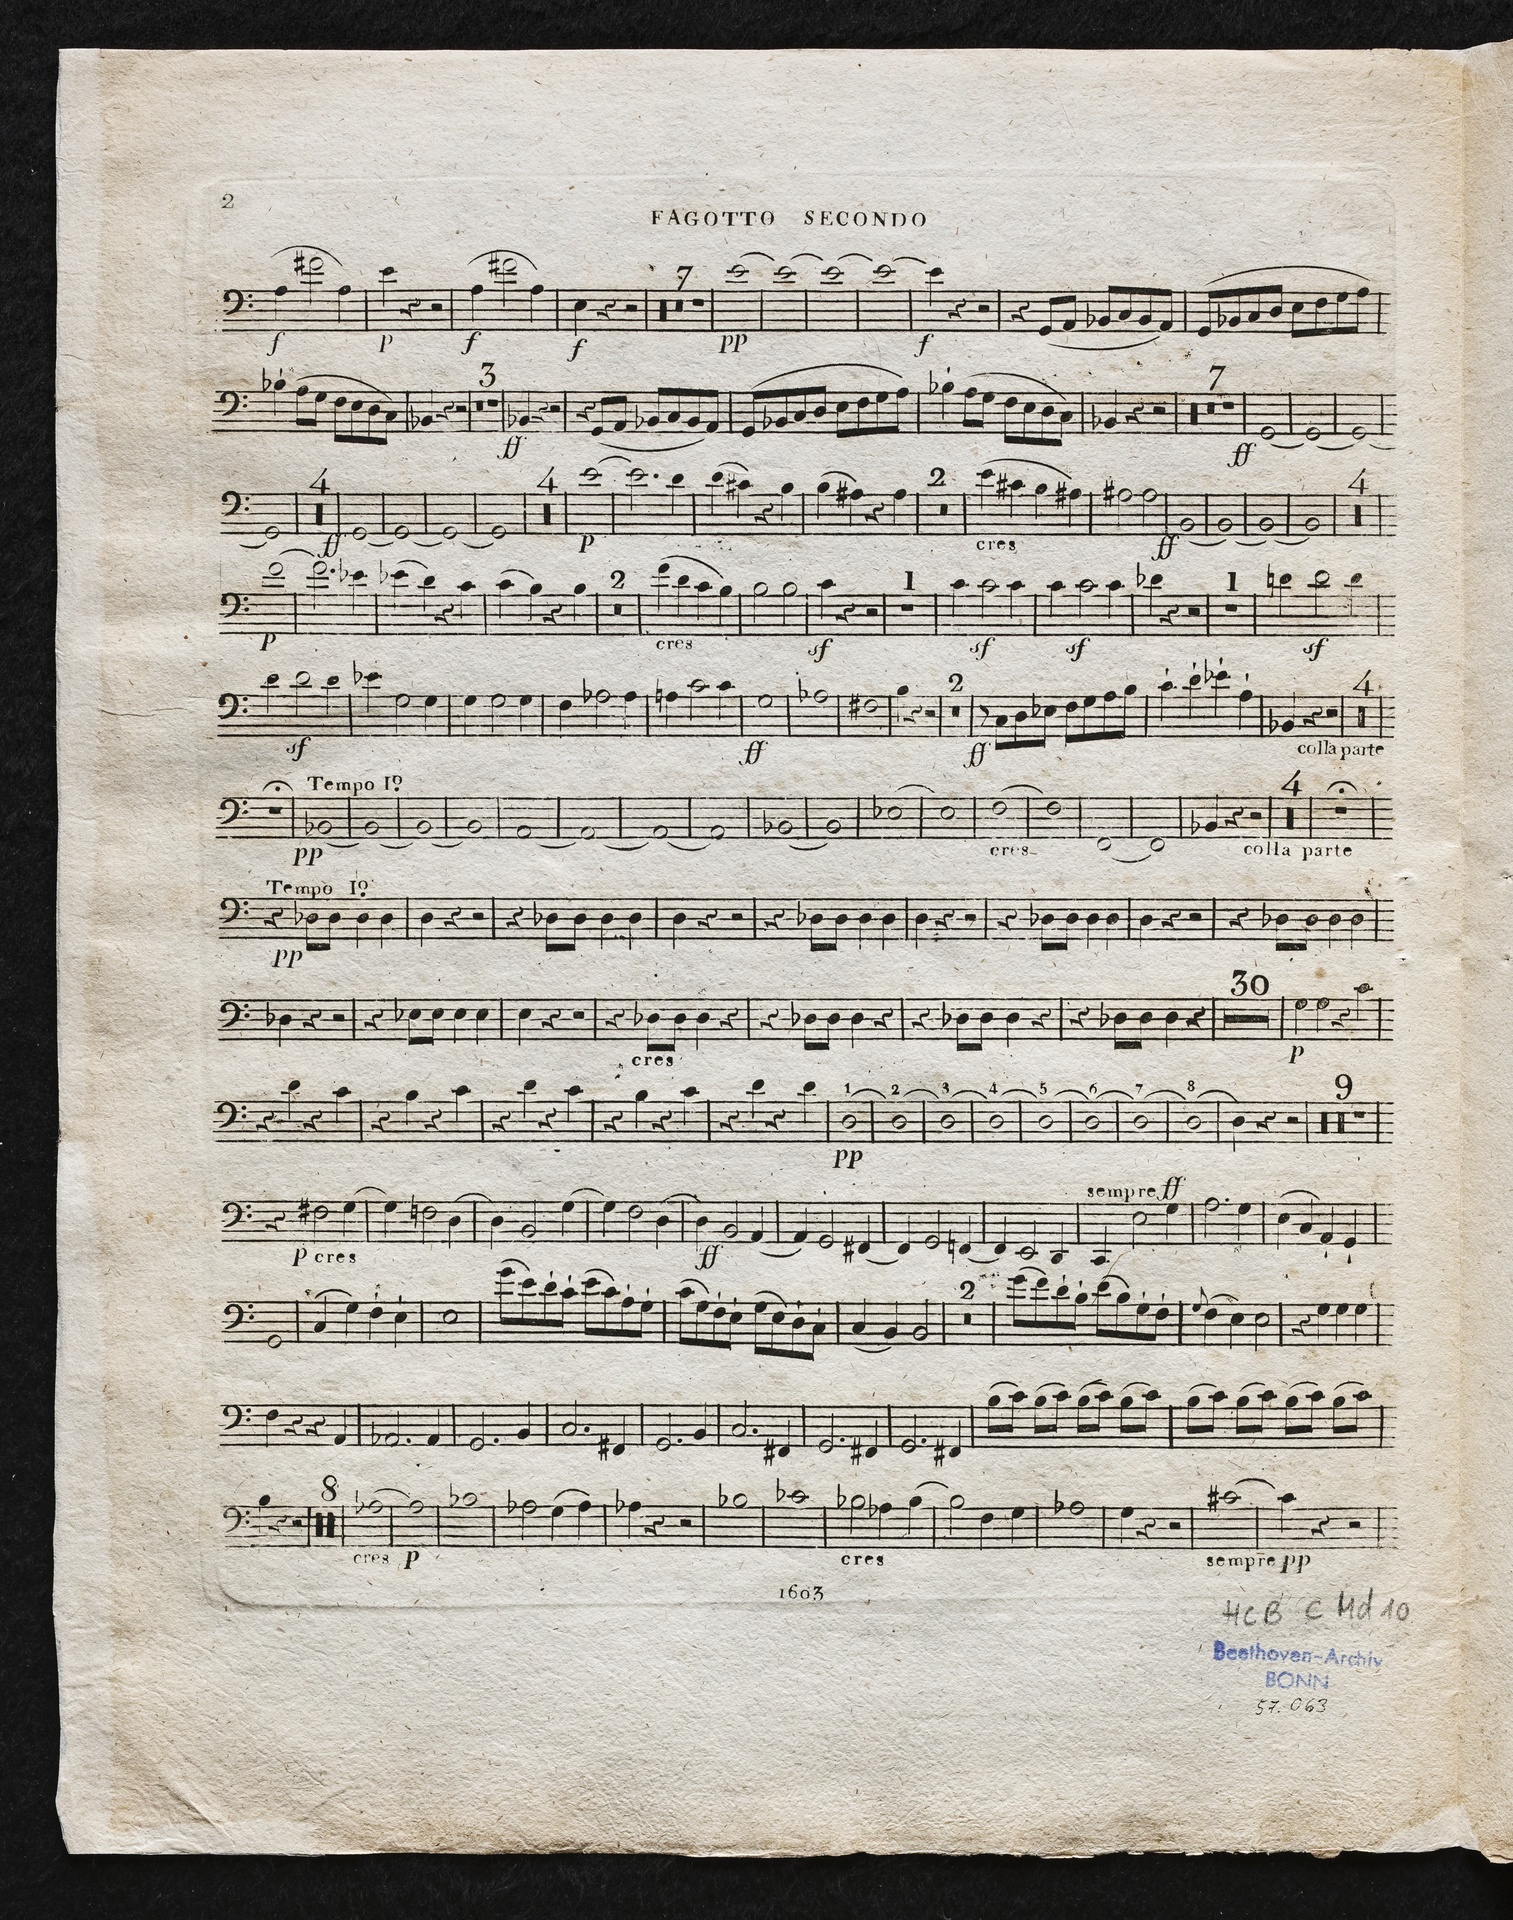 2
FAGOTTO SECONDO
7
f p f f pp f
3 7
ff ff
4 4 2 4
ff p cres ff
2 1 1
p cres sf sf sf sf
2 4
sf ff ff colla parte
Tempo Iº 4
pp cres colla parte
Tempo Iº
pp
30
cres p
1 2 3 4 5 6 7 8 9
pp
sempre ff
p cres ff
2
8
cres p cres sempre pp
1603
HCB C Md 10
Beethoven-Archiv
BONN
57.063